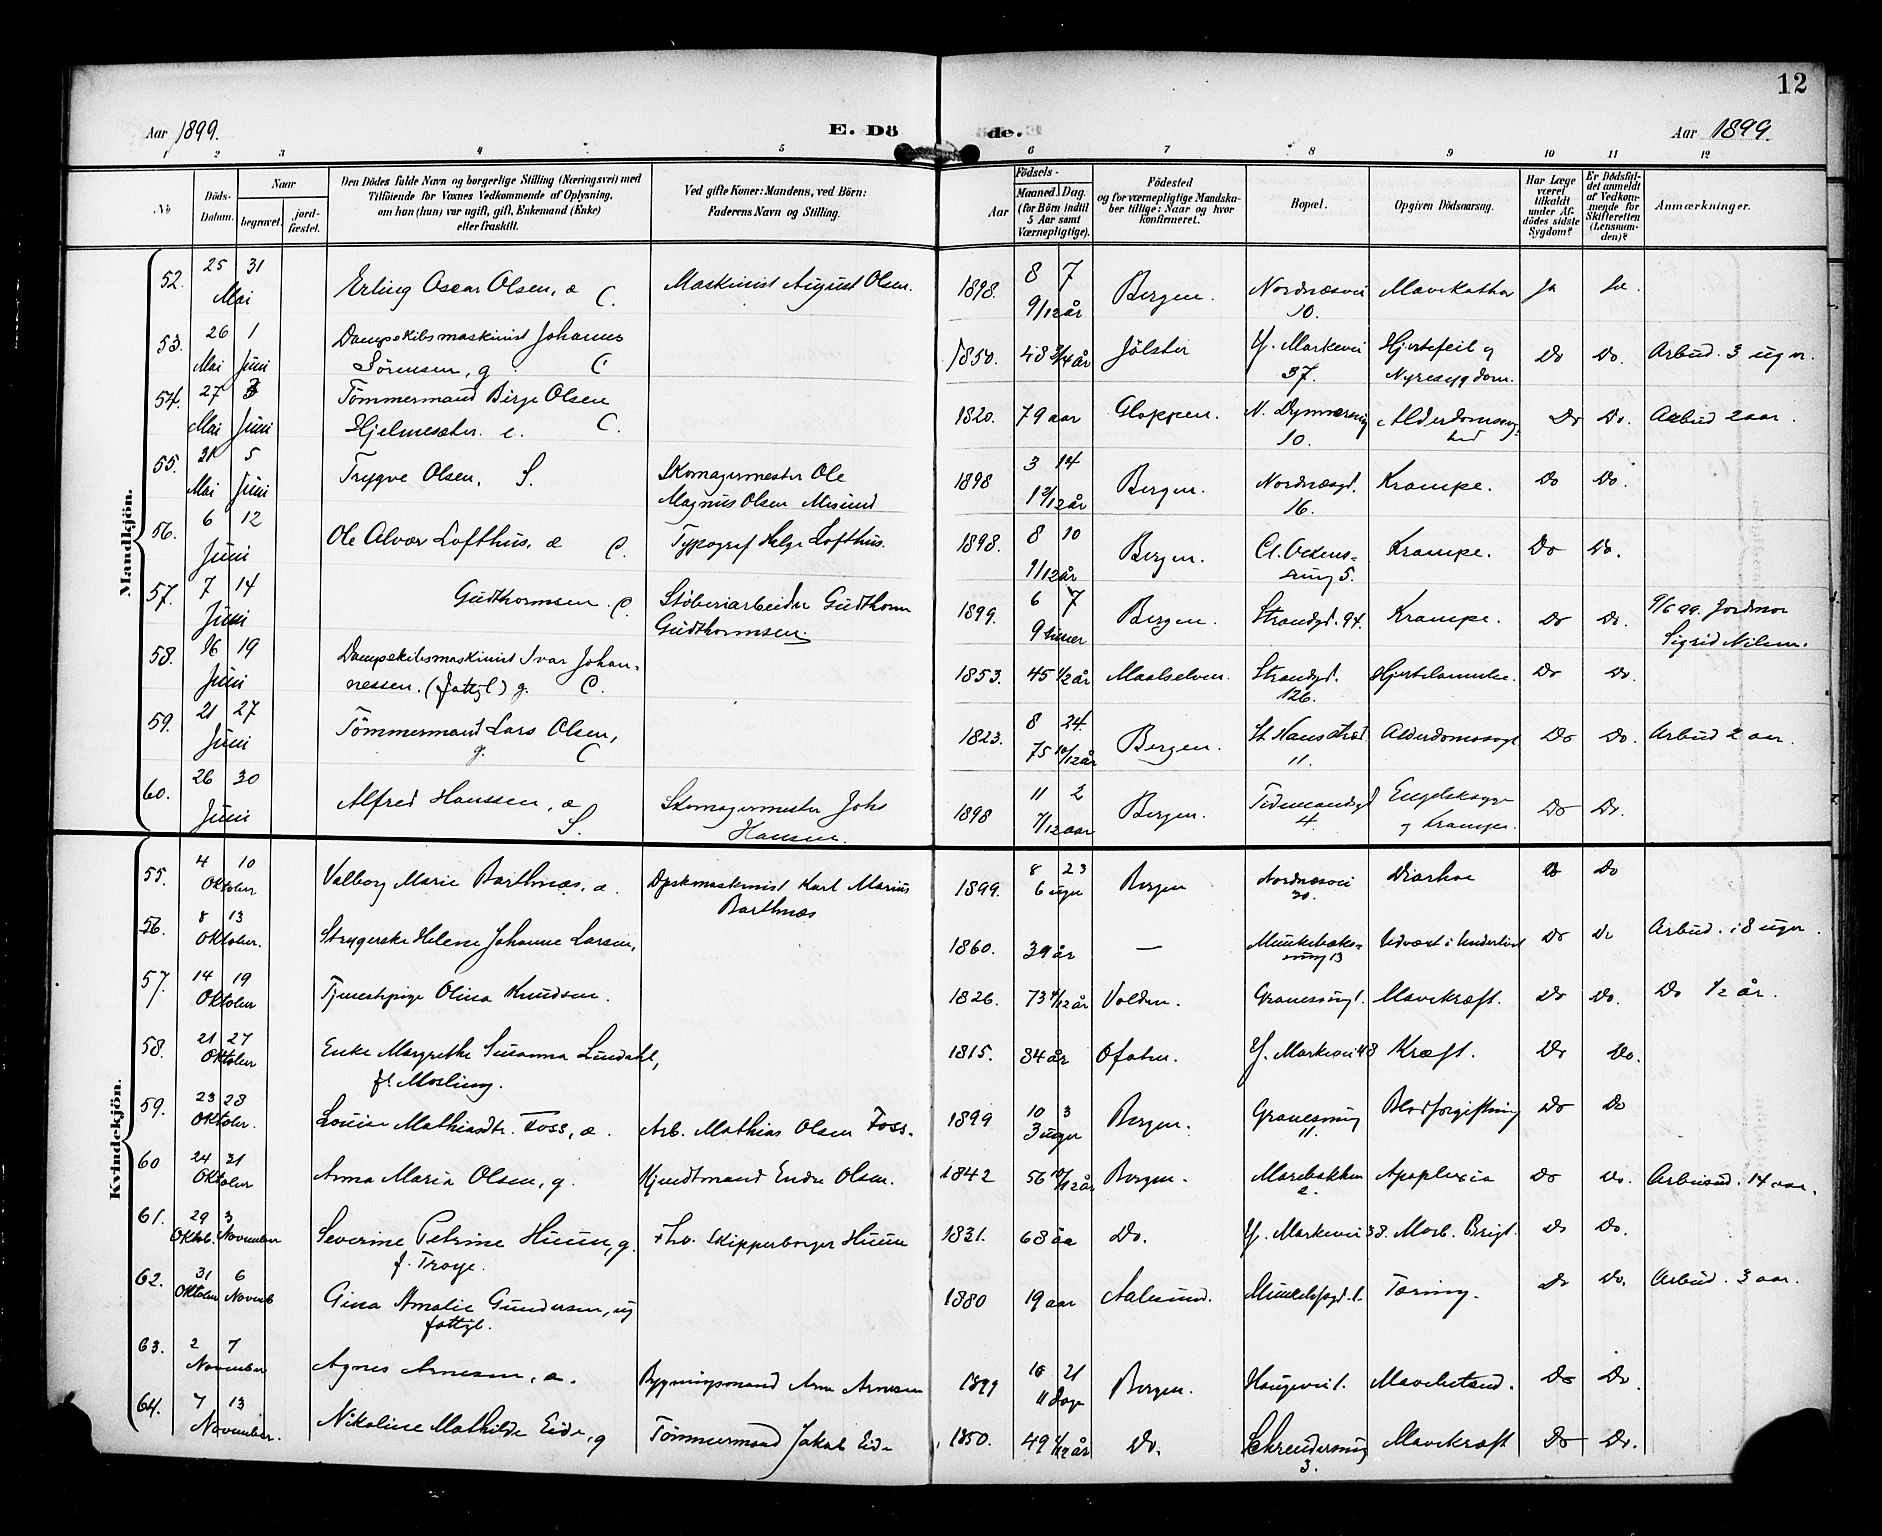 12
Aar 1899.
E. Döde.
Aar 1899.
1 2 3 4 5 6 7 8 9 10 11 12
No
Döds-Datum.
Naar
begravet.
jordfæstet.
Den Dödes fulde Navn og borgerlige Stilling (Næringsvei) med
Tilföiende for Voxnes Vedkommende af Oplysning,
om han (hun) var ugift, gift, Enkemand (Enke)
eller fraskilt.
Ved gifte Koner: Mandens, ved Börn:
Faderens Navn og Stilling.
Aar
Födsels-
Maaned Dag
(for Börn indtil
5 Aar samt
Værnepligtige).
Födested
og for værnepligtige Mandska-
ber tillige: Naar og hvor
konfirmeret.
Bopæl.
Opgiven Dödsaarsag.
Har Læge
været
tilkaldt
under Af-
dödes sidste
Sygdom?
Er Dödsfal-
det anmeldt
af Vedkom-
mende for
Skifteretten
(Lensman-
den)?
Anmærkninger.
Mandkjön.
52. 25 31 Mai Erling Oscar Olsen, æ C. Maskinist August Olsen. 1898. 8 7 9/12 år Bergen. Nordnæsvei 10. Mavekathar Ja Ja
53. 26 Mai 1 Juni Dampskibsmaskinist Johannes
Sörensen, g C 1850. 48 3/4 år Jölster Y. Markevei 37. Hjertefeil og Nyresygdom. Do Do. Arbud. 3 uger.
54. 27 Mai 3 Juni Tömmermand Birge Olsen
Hjelmesæter. e. C. 1820. 79 aar Gloppen. 10. Do Do. Arbud 2 aar.
55. 31 Mai 5 Juni Trygve Olsen, S. Skomagermester Ole
Magnus Olsen Misund 1898 3 14 1 2/12 år Bergen. Nordnæsgd. 16. Krampe. Do Do.
56. 6 12 Juni Ole Alvær Lofthus, æ C. Typograf Helge Lofthus. 1898. 8 10 9/12 år Bergen. 5. Krampe. Do Do.
57. 7 14 Juni Gudthormsen. C. Stöberiarbeider Gudthorm
Gudthormsen. 1899. 6 7 9 timer Bergen. Strandgd. 94. Krampe. Do Do. 9/6 99. Jordmor
Sigrid Nilsen.
58. 16 19 Juni Dampskibsmaskinist Ivar Johan-
nessen. (fattigl) g. C. 1853. 45 1/2 år Maalselven. Strandgd. 126. Hjertelammelse. Do Do.
59. 21 27 Juni Tömmermand Lars Olsen,
g. C 1823. 8 24. 75 10/12 år Bergen. St Hansstræd 11. Alderdomssvagh Do Do. Arbud 2 aar.
60. 26 30 Juni Alfred Hanssen, æ S. Skomagermester Johs
Hansen. 1898 11 2 7/12 aar Bergen. Tidemandsgd 4. Engelsksyge og Krampe. Do Do.
Kvindekjön.
55. 4 10 Oktober Valborg Marie Barthnæs, æ. Dpskmaskinist Karl Marius
Barthnæs 1899. 8 23 6 uger Bergen Nordnæsvei 30. Diarhoe Do Do
56. 8 13 Oktober. Strygerske Helene Johanne Larsen, 1860. 39 år — 13 Udvæxt i Underlivet Do Do Arbud. i 8 uger.
57. 14 19 Oktober Tjenestepige Olina Knudsen. 1826. 73 4/12 år Volden. Mavekræft. Do Do. Do 1/2 år.
58. 21 27 Oktober Enke Margrethe Susanna Lindahl,
f. Morling. 1815. 84 år Ofoten. Y. Markevei 48 Kræft. Do Do.
59. 23 28 Oktober. Louise Mathiasdtr. Foss, æ. Arb. Mathias Olsen Foss. 1899 10 3 3 uger Bergen. 11. Blodforgiftning Do Do
60 24 31 Oktober Anna Maria Olsen, g. Kjendtmand Endre Olsen. 1842 56 10/12 år Bergen. Marebakken 2. Apoplexia Do Do. Arbeisud. 14 aar.
61. 29 Oktob. 3 November Severine Petrine Huun, g.
f. Troye. Skipperborger Huun 1831. 68 åa Do. Y. Markevei 38. Morb. Brigt. Do Do.
62. 31 Oktober 6 Novemb Gina Amalie Gundersen, ug
fattigl. 1880 19 aar Aalesund. Tæring. Do Do. Arbud. 3 aar.
63. 2 7 November Agnes Arnesen, æ. Bygningsmand Arne Arnesen 1899 10 21 11 dage Bergen. Haugevei 1. Do Do.
64. 7 13 November. Nikoline Mathilde Eide, g Tömmermand Jakob Eide 1850. 49 1/12 år Do. 3. Mavekræft Do Do.